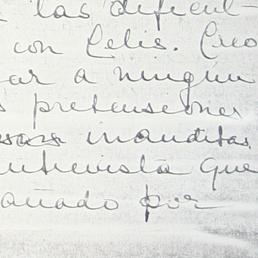 las dificul-
con Celis. Creo
ar a ningún
pretensiones
inauditas
ntrevista que
añado por